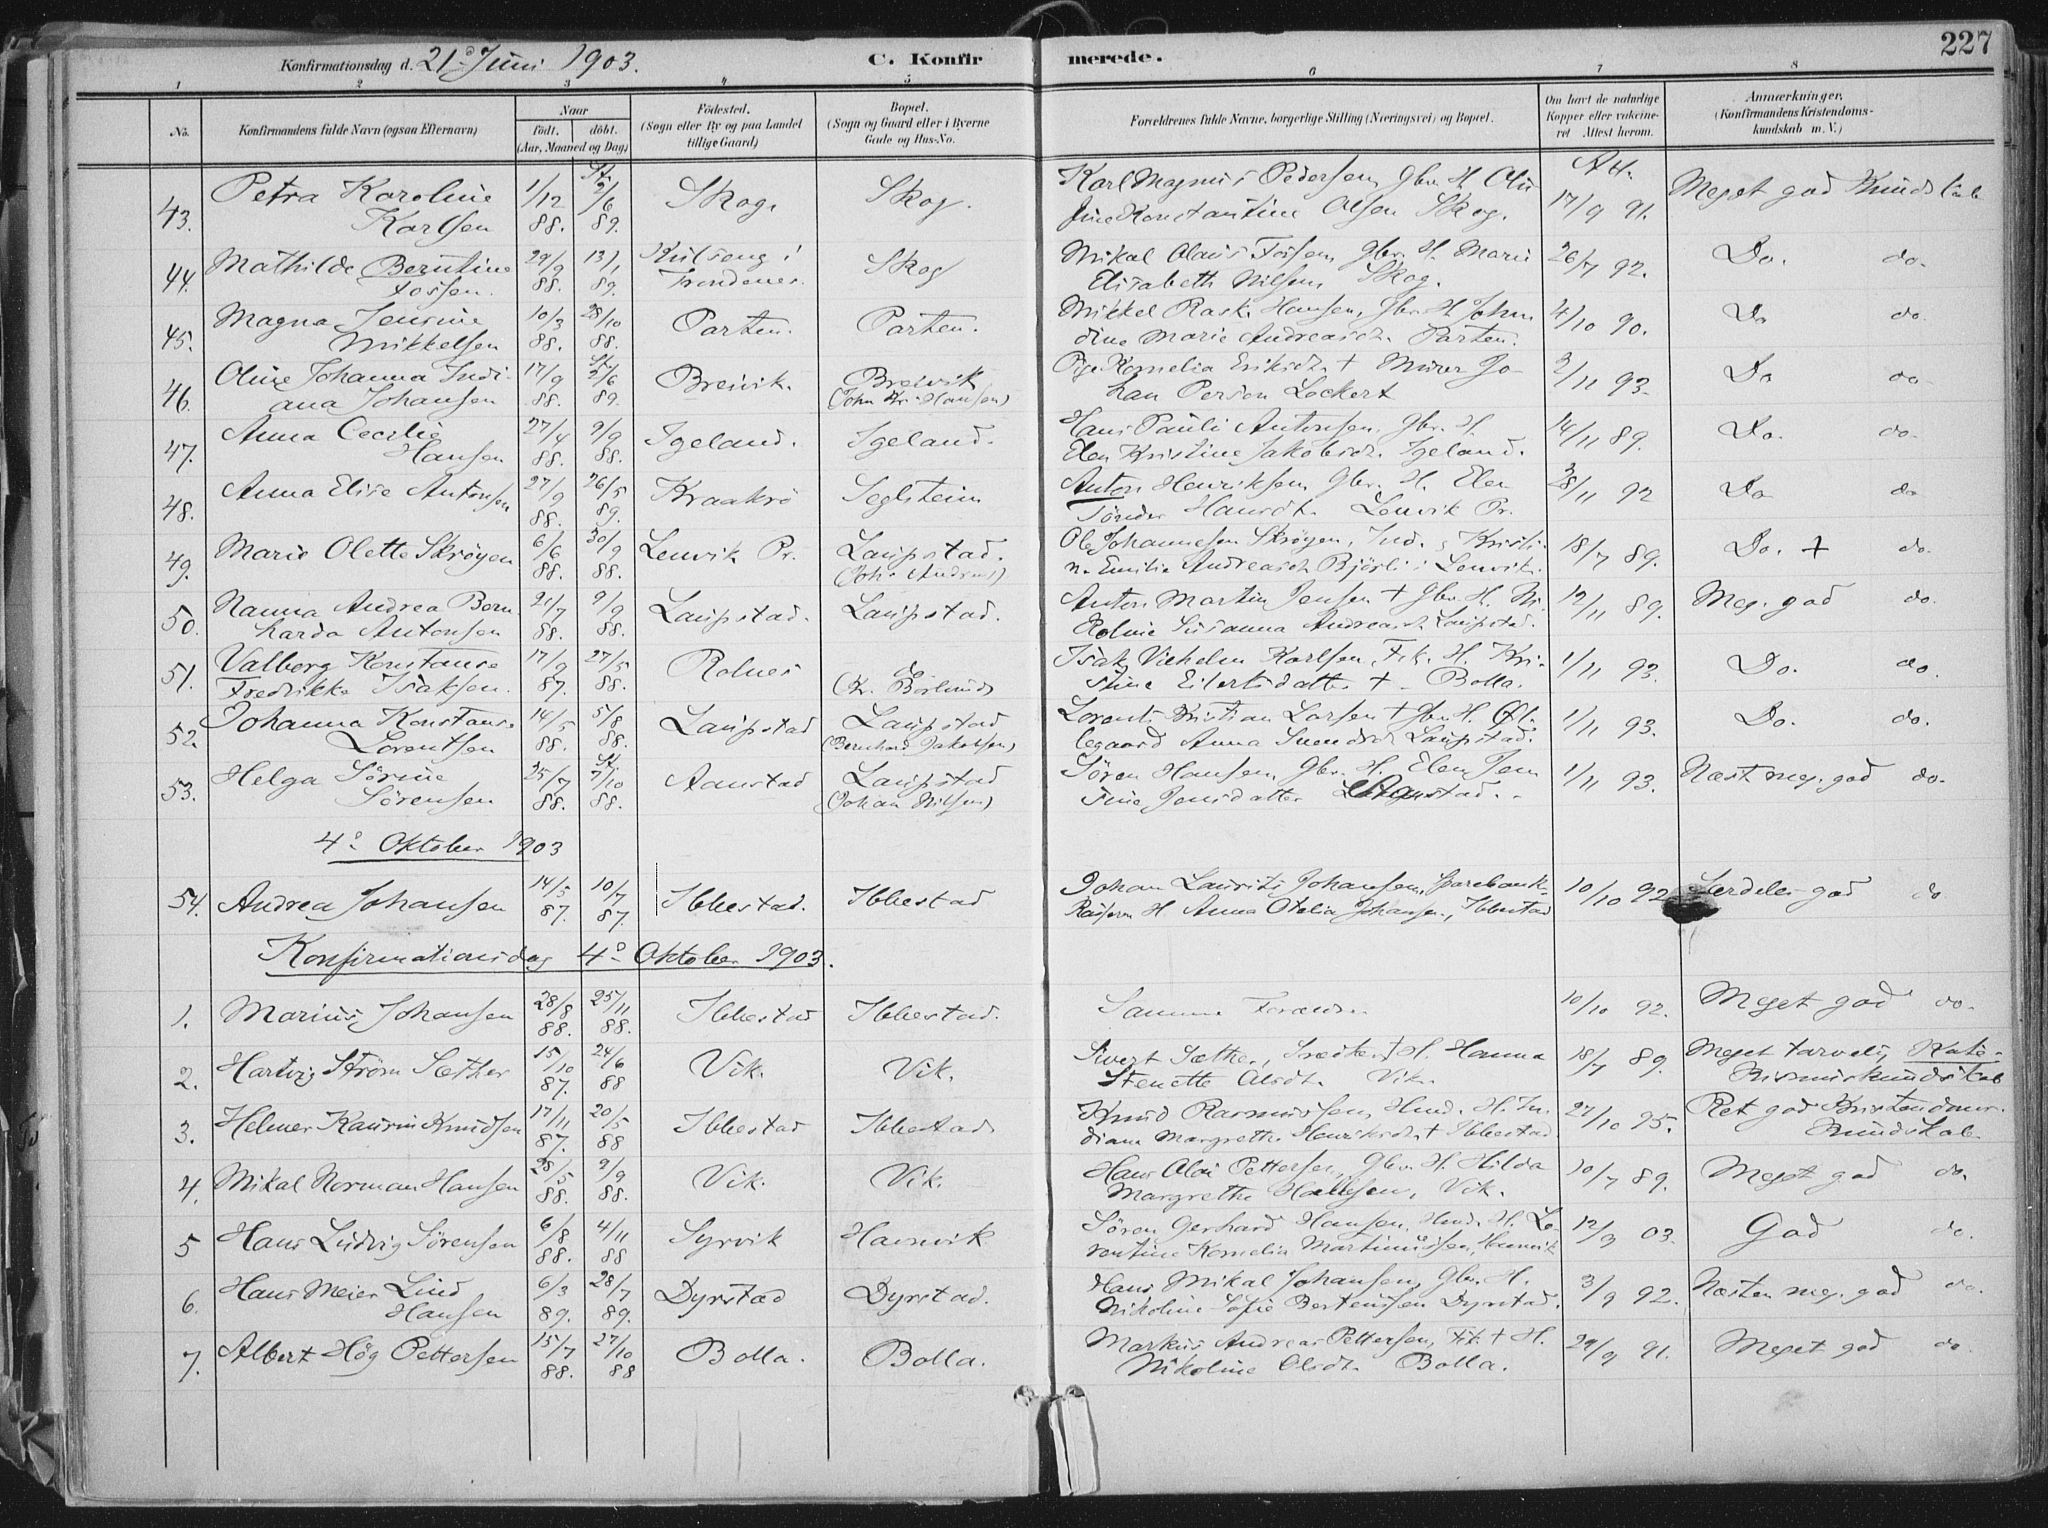 227
Konfirmationsdag d. 21de Juni 1903.
C. Konfirmerede.
1 2 3 4 5 6 7 8
No.
Konfirmandens fulde Navn (ogsaa Efternavn)
Naar
födt. döbt.
(Aar, Maaned og Dag)
Födested.
(Sogn eller By og paa Landet
tillige Gaard)
Bopæl.
(Sogn og Gaard eller i Byerne
Gade og Hus-No.
Forældrenes fulde Navne, borgerlige Stilling (Næringsvei) og Bopæl.
Om havt de naturlige
Kopper eller vakcine-
ret Attest herom.
Anmærkninger.
(Konfirmandens Kristendoms-
kundskab m. V.)
43. Petra Karoline 1/12 St. 2/6 Skog. Skog. Karl Magnus Pedersen, Gbr. H. Olu- Att. 17/9 91. Meget god Kundskab
Karlsen 88. 89. fine Konstantine Olsen Skog.
44. Mathilde Berntine 29/9 13/1 Kilseng i Skog Mikal Olaus Fossen, Gbr. H. Marie 26/7 92. Do. do.
Fossen. 88. 89. Trondenes. Elisabeth Nilsen, Skog.
45. Magna Jensine 10/3 28/10 Parten. Parten. Mikkel Rask Hansen, Gbr. H. Johan 4/10 90. Do do.
Mikkelsen 88. 88. dine Marie Andreasdt. Parten.
46. Oline Johanna Indi- 17/9 St. 2/6 Breivik. Breivik Pige Kornelia Eriksdt. + Murer Jo- 2/11 93. Do do.
ana Johansen 88. 89. (John Kr. Hansen) han Persen Lockert
47. Anna Cecilie 27/4 9/9 Igeland. Igeland. Hans Pauli Antonsen, Gbr. H. 14/11 89. Do. do.
Hansen 88. 88. Elen Kristine Jakobsdt. Igeland.
48. Anna Elise Antonsen 27/9 26/5 Kraakrö Seglsteim Anton Henriksen, Gbr. H. Elen 28/11 92 Do do
88. 89. Tönder Hansdt. Lenvik Pr.
49. Marie Olette Skrøyen 6/6 30/9 Lenvik Pr. Laupstad. Ole Johannesen Skrøyen, Ind. & Kristi- 18/7 89. Do. + do.
88. 88. (Johs Andreas) ne Emilie Andreasdt Bjórli i Lenvik.
50. Nanna Andrea Bern 21/7 9/9 Laupstad. Laupstad. Anton Martin Jensen + Gbr. H. Ni- 12/11 89. Meg. god do.
harda Antonsen 88. 88. koline Susanna Andreasdt Laupstad.
51. Valborg Konstanse 17/9 27/5 Rolnes do Isak Vilhelm Karlsen, Fik. H. Kri- 1/11 93. Do. do.
Fredrikke Isaksen. 87. 88. (Kr. Börlund) stine Eilertsdatter + Bolla.
52. Johanna Konstanse 14/5 5/8 Laupstad Laupstad Lorents Kristian Larsen + Gbr. H. Øl- 1/11 93. Do. do.
Lorentsen 88. 88. (Bernhard Jakobsen) legaard Anna Svendsd Laupstad.
53. Helga Sörine 25/7 St. 7/10 Aanstad Laupstad Sören Hansen, Gbr. H. Elen Jen 1/11 93. Næst meg. god do.
Sörensen 88. 88. (Johan Nilsen) sine Jensdatter Aanstad.
4de Oktober 1903
54. Andrea Johansen 14/5 10/7 Ibbestad. Ibbestad Johan Laurits Johansen, Sparebank- 10/10 92 Særdeles god do
87. 87. kasserer H. Anna Otelia Johansen, Ibbestad
Konfirmationsdag 4de Oktober 1903.
1. Marius Johansen 28/8 25/11 Ibbestad Ibbestad. Samme Forældre 10/10 92. Meget god do.
88. 88.
2. Hartvig Strøm Sæther 15/10 24/6 Vik. Vik. Sivert Sæther, Snedker + H. Hanna 18/7 89. Meget tarvelig Kate-
87. 88 Stenette Olsdt. Vik. kismuskundskab
3. Helmer Kaurin Knudsen 17/11 20/5 Ibbestad Ibbestad Knud Rasmussen, Hmd. H. In- 27/10 95. Ret god Kristendoms-
87. 88 diana Margrethe Henriksdt + Ibbestad. kundskab
4. Mikal Norman Hansen 28/5 9/9 Vik. Vik. Hans Olai Pettersen, Gbr. H. Hilda 10/7 89. Meget god do.
88. 88. Margrethe Hansen, Vik.
5 Hans Ludvig Sørensen 6/8 4/11 Syrvik Havnvik Sören Gerhard Hansen, Hmd. H. Lo- 12/9 03. God do.
88. 88 rentine Kornelia Martinussen, Havnvik
6. Hans Meier Lind 6/3 28/7 Dyrstad Dyrstad. Hans Mikal Johansen, Gbr. H. 3/9 92. Næsten meg. god do.
Hansen 89. 89. Nikoline Sofie Berteussen Dyrstad.
7. Albert Hög Pettersen 15/7 27/10 Bolla. Bolla. Markus Andreas Pettersen, Fik. + H. 24/9 91. Meget god do.
88. 88 Nikoline Olsdt. Bolla.